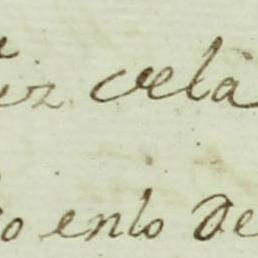 iz vela
o enlo de